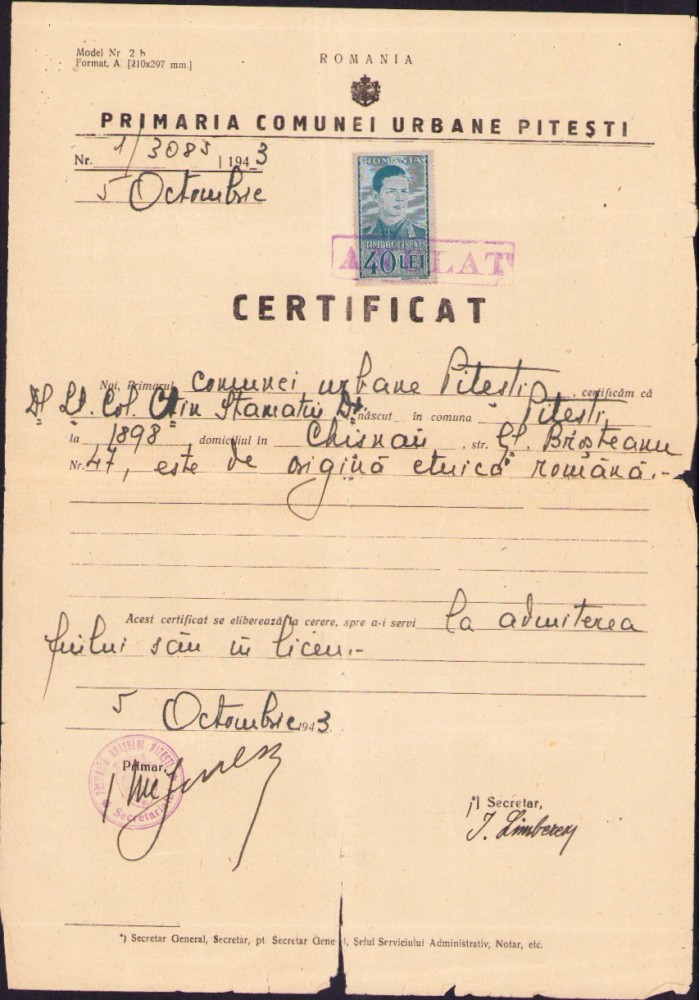 Model Nr 2 b
Format, A. [210x297 mm.]
ROMANIA
PRIMARIA COMUNEI URBANE PITEȘTI
Nr. 1/3085 | 1943
5 Octombrie
ROMANIA
TIMBRU FISCAL
40 LEI
ANULAT
CERTIFICAT
Noi, Primarul comunei urbane Pitești, certificăm că
Dl Lt. Col. Ctin Stamatiu D. născut în comuna Pitești
la 1898, domiciliul în Chisnau, str. Gl. Broșteanu
Nr. 47, este de origină etnică română.-
Acest certificat se eliberează la cerere, spre a-i servi la admiterea
fiului său în liceu.-
5 Octombrie 1943
Primar,
PRIMARIA ORAȘULUI PITEȘTI
Secretariat
*) Secretar,
*) Secretar General, Secretar, pt. Secretar Gene l, Șeful Serviciului Administrativ, Notar, etc.